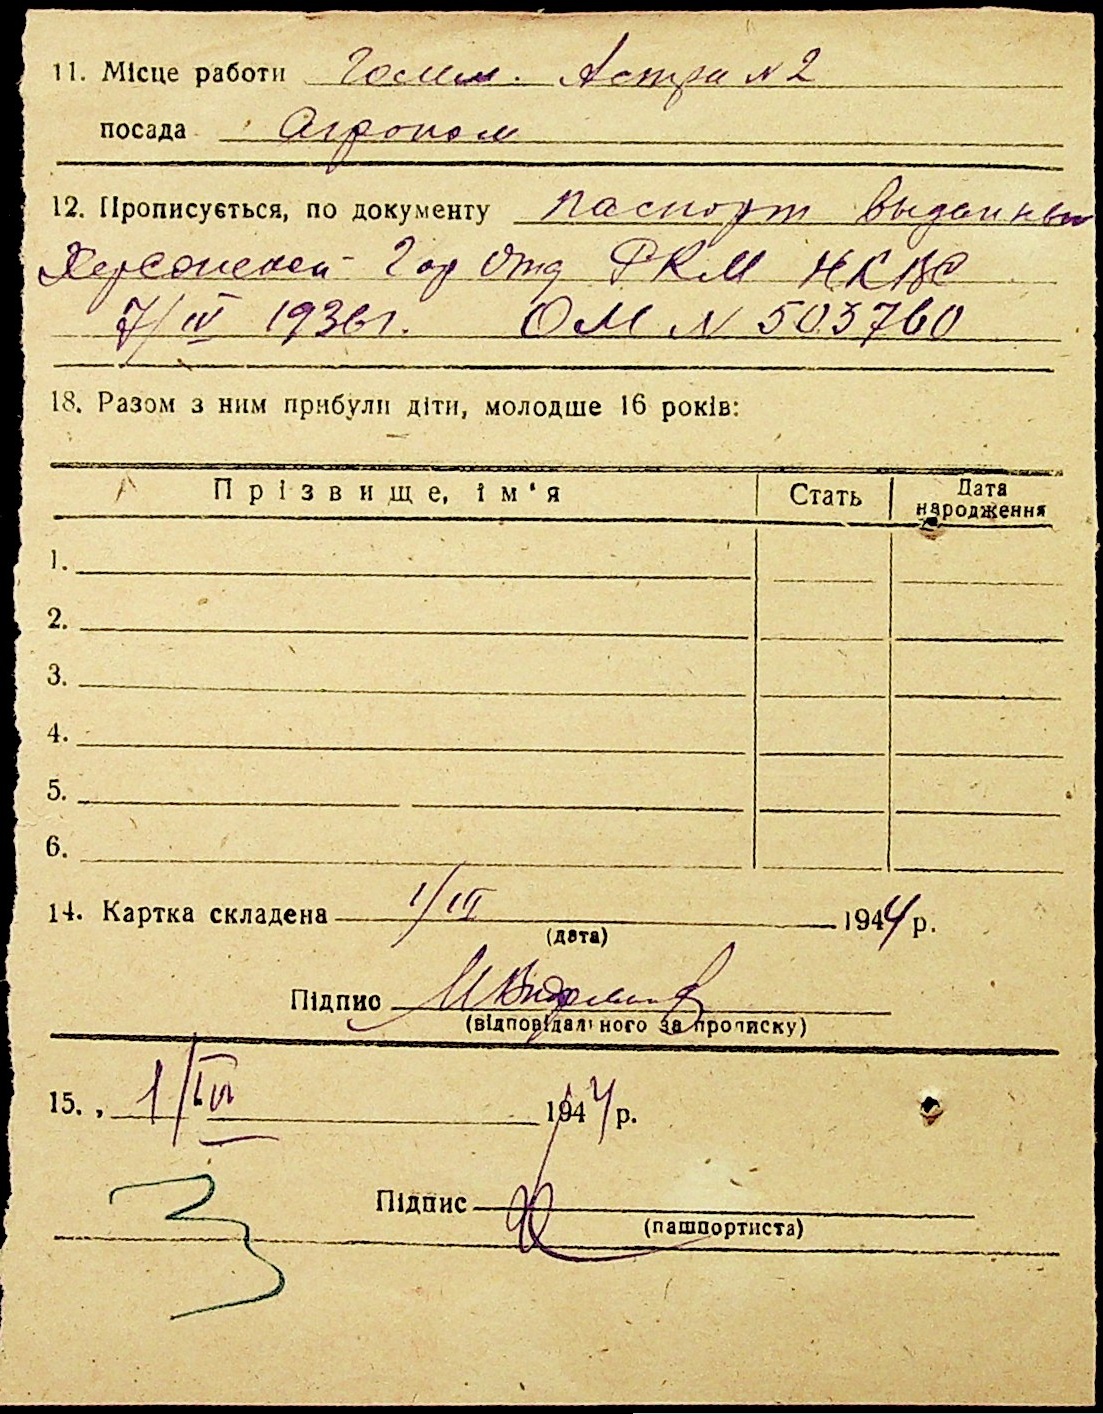 11. Місце работи Госпм. Астра N 2
посада Агроном
12. Прописується, по документу паспорт выданный
Херсонской Гор Отд РКМ НКВД
7/IV 1936г. ОМ N 503760
18. Разом з ним прибули діти, молодше 16 років:
Прізвище, ім'я Стать Дата народження
1.
2.
3.
4.
5.
6.
14. Картка складена 1/III 1944 р.
(дата)
Підпис
(відповідального за прописку)
15. , 1/IV 1944 р.
Підпис
(пашпортиста)
З